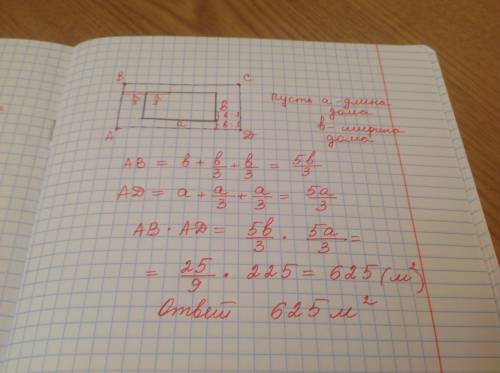 B C
a/3 a/3 B
b:3
a b:3
A D
пусть a - длина
дома
b - ширина
дома
AB = b + b/3 + b/3 = 5b/3
AD = a + a/3 + a/3 = 5a/3
AB · AD = 5b/3 · 5a/3 =
= 25/9 · 225 = 625 (м²)
Ответ 625 м²